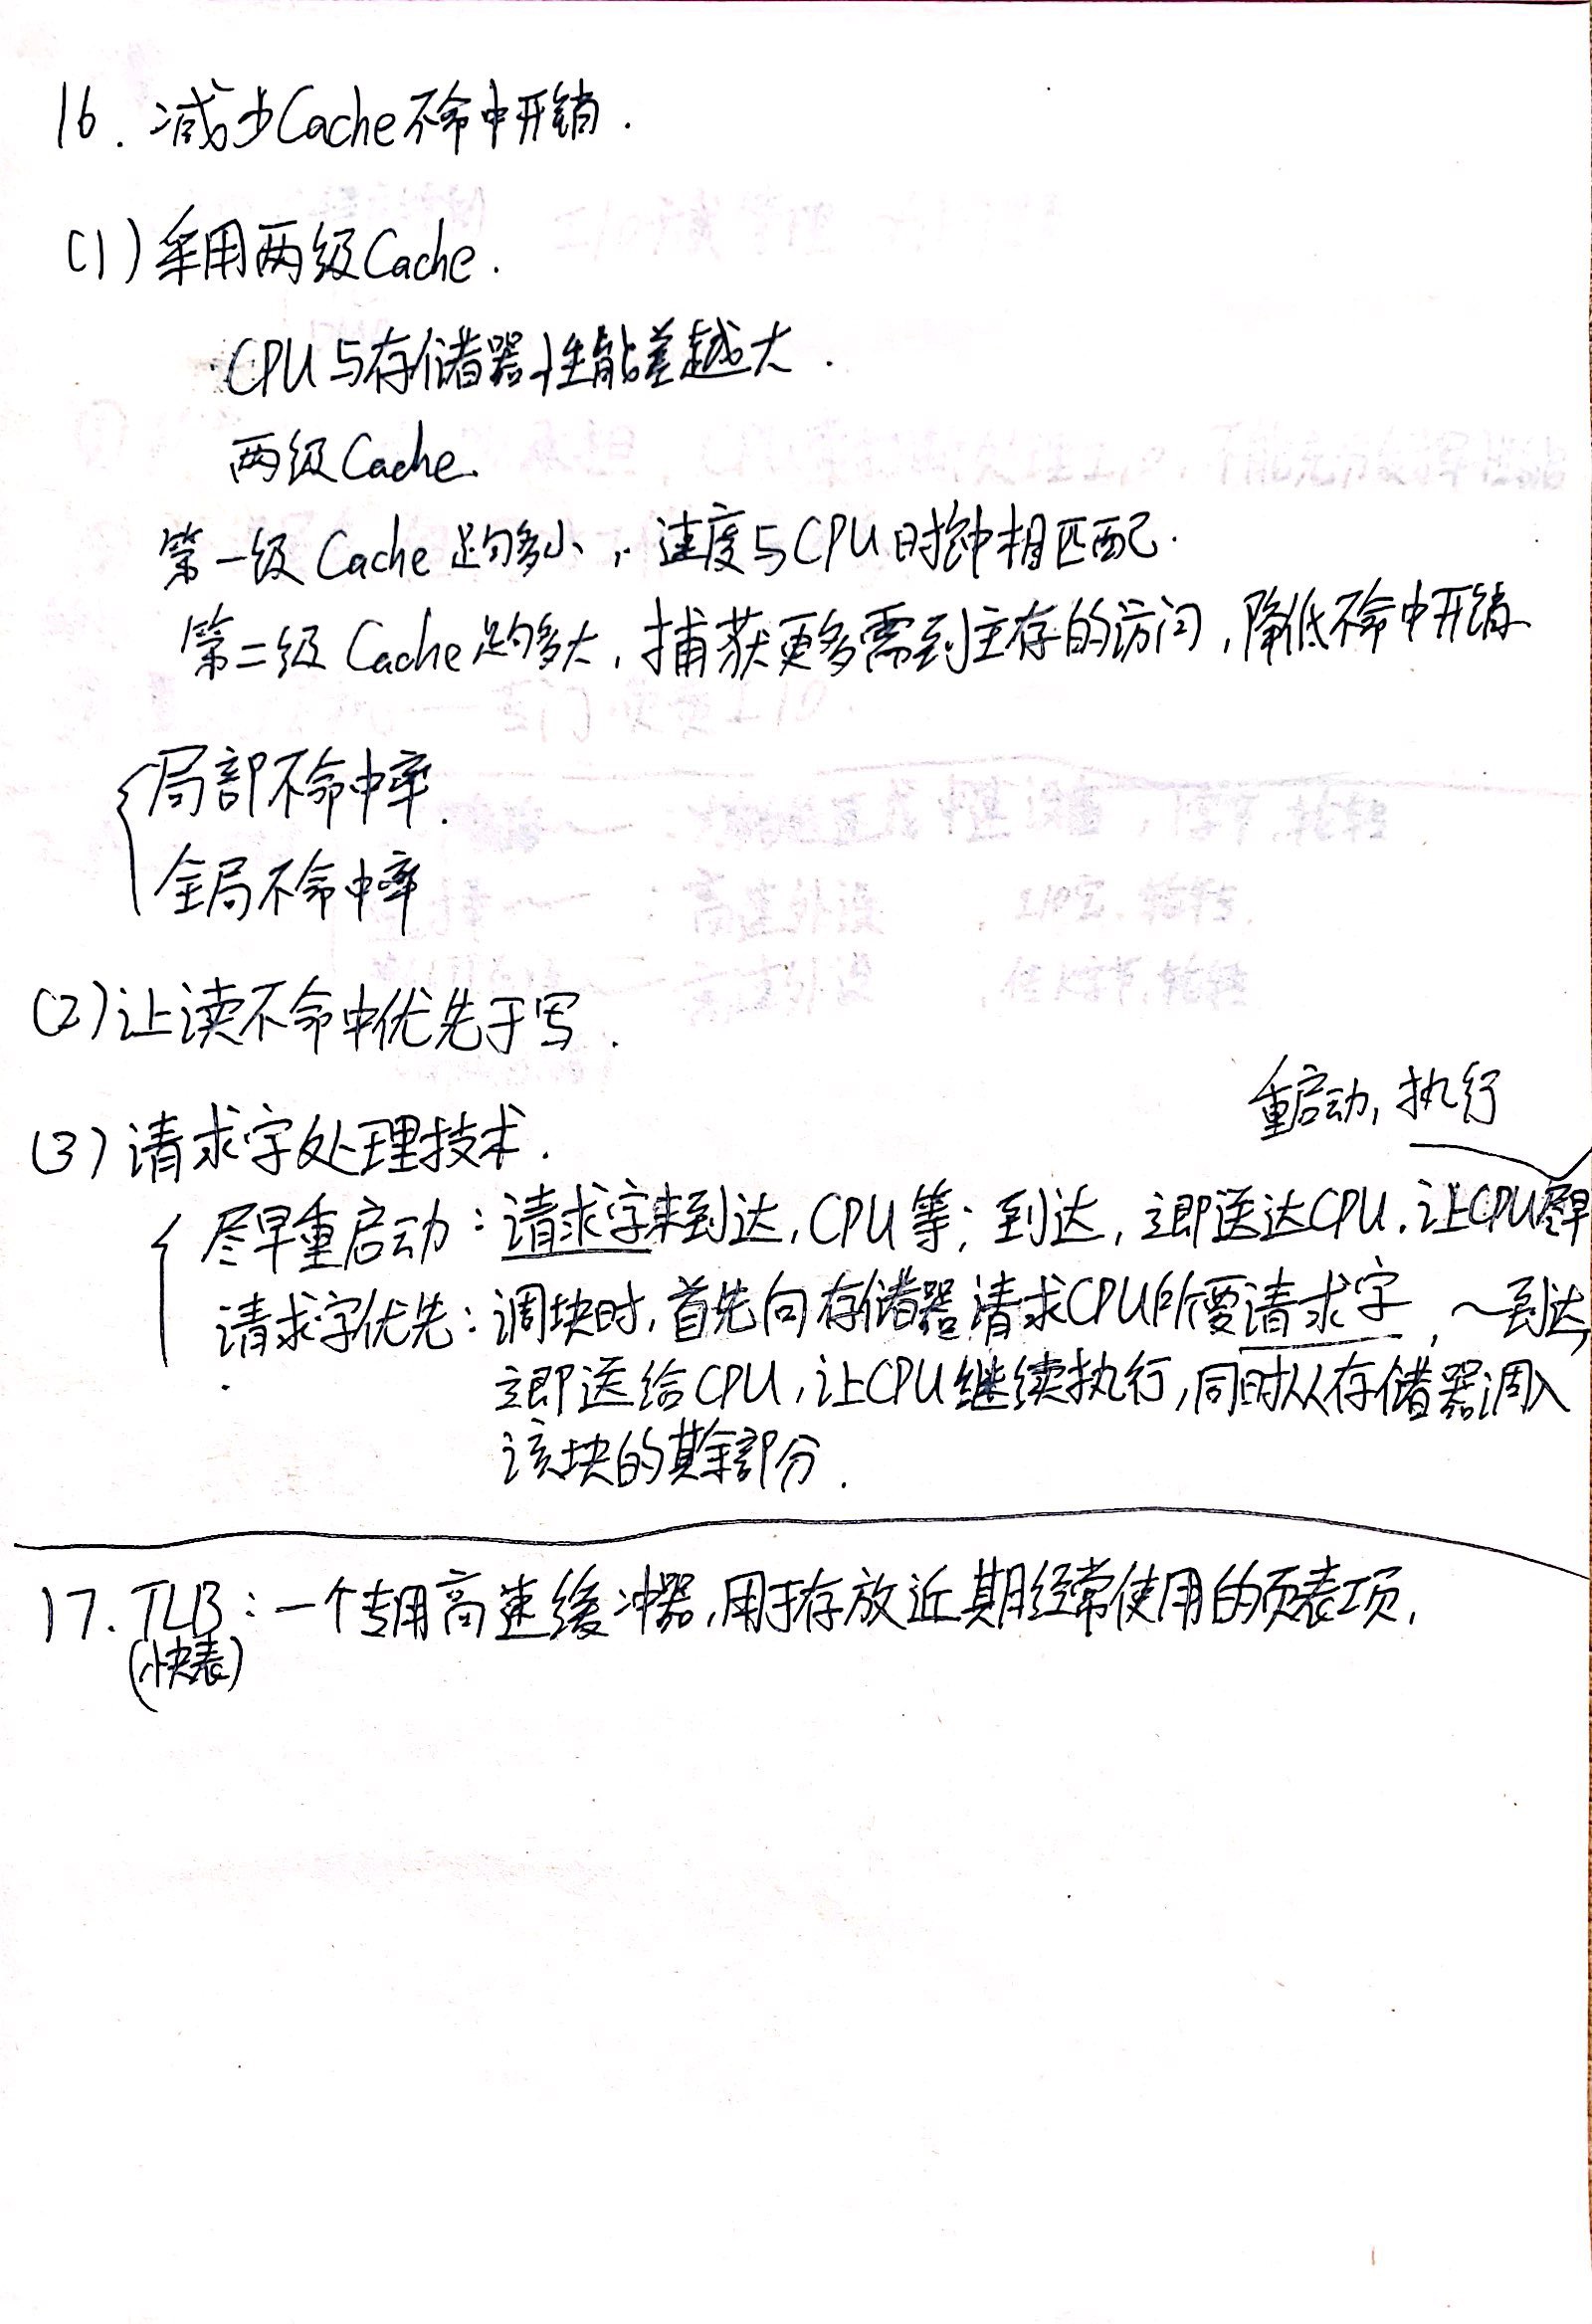 16. 减少Cache不命中开销.
(1) 采用两级Cache.
CPU与存储器性能差越大.
两级Cache.
第一级Cache足够小, 速度与CPU时钟相匹配.
第二级Cache足够大, 捕获更多需到主存的访问, 降低不命中开销
局部不命中率.
全局不命中率
(2) 让读不命中优先于写.
(3) 请求字处理技术.
重启动, 执行
尽早重启动: 请求字未到达, CPU等; 到达, 立即送达CPU. 让CPU尽早
请求字优先: 调块时, 首先向存储器请求CPU所要请求字, ~到达,
立即送给CPU, 让CPU继续执行, 同时从存储器调入
该块的其余部分.
17. TLB: 一个专用高速缓冲器, 用于存放近期经常使用的页表项,
(快表)